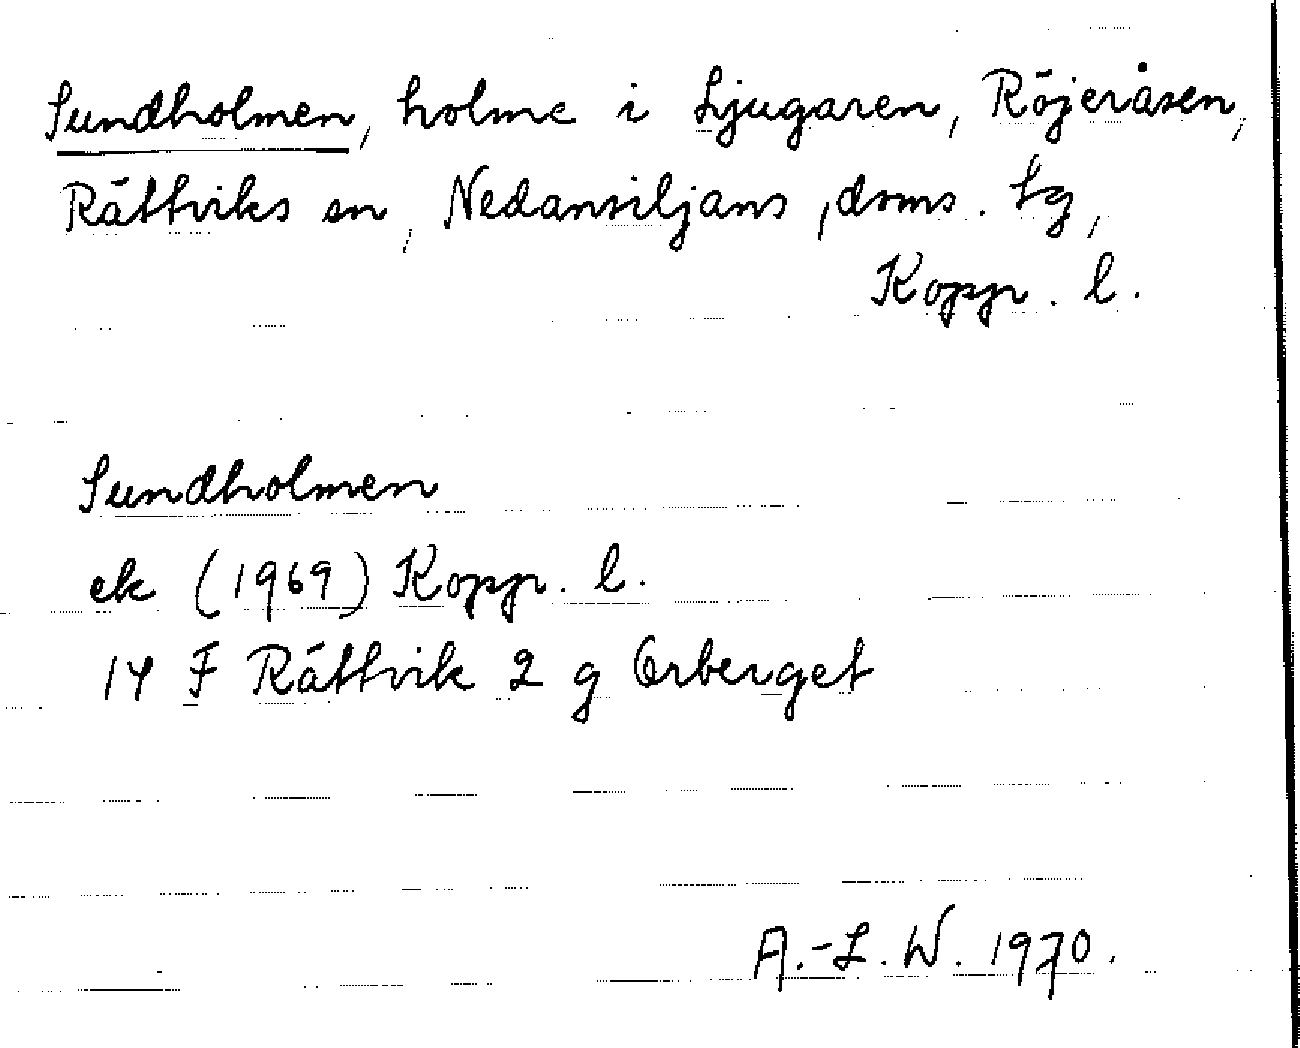 Sundholmen, holme i Ljugaren, Röjeråsen,
Rättviks sn, Nedansiljans, doms. tg,
Kopp. l.
Sundholmen
ek (1969) Kopp. l.
14 F Rättvik 2 g Orberget
A.-L. W. 1970.